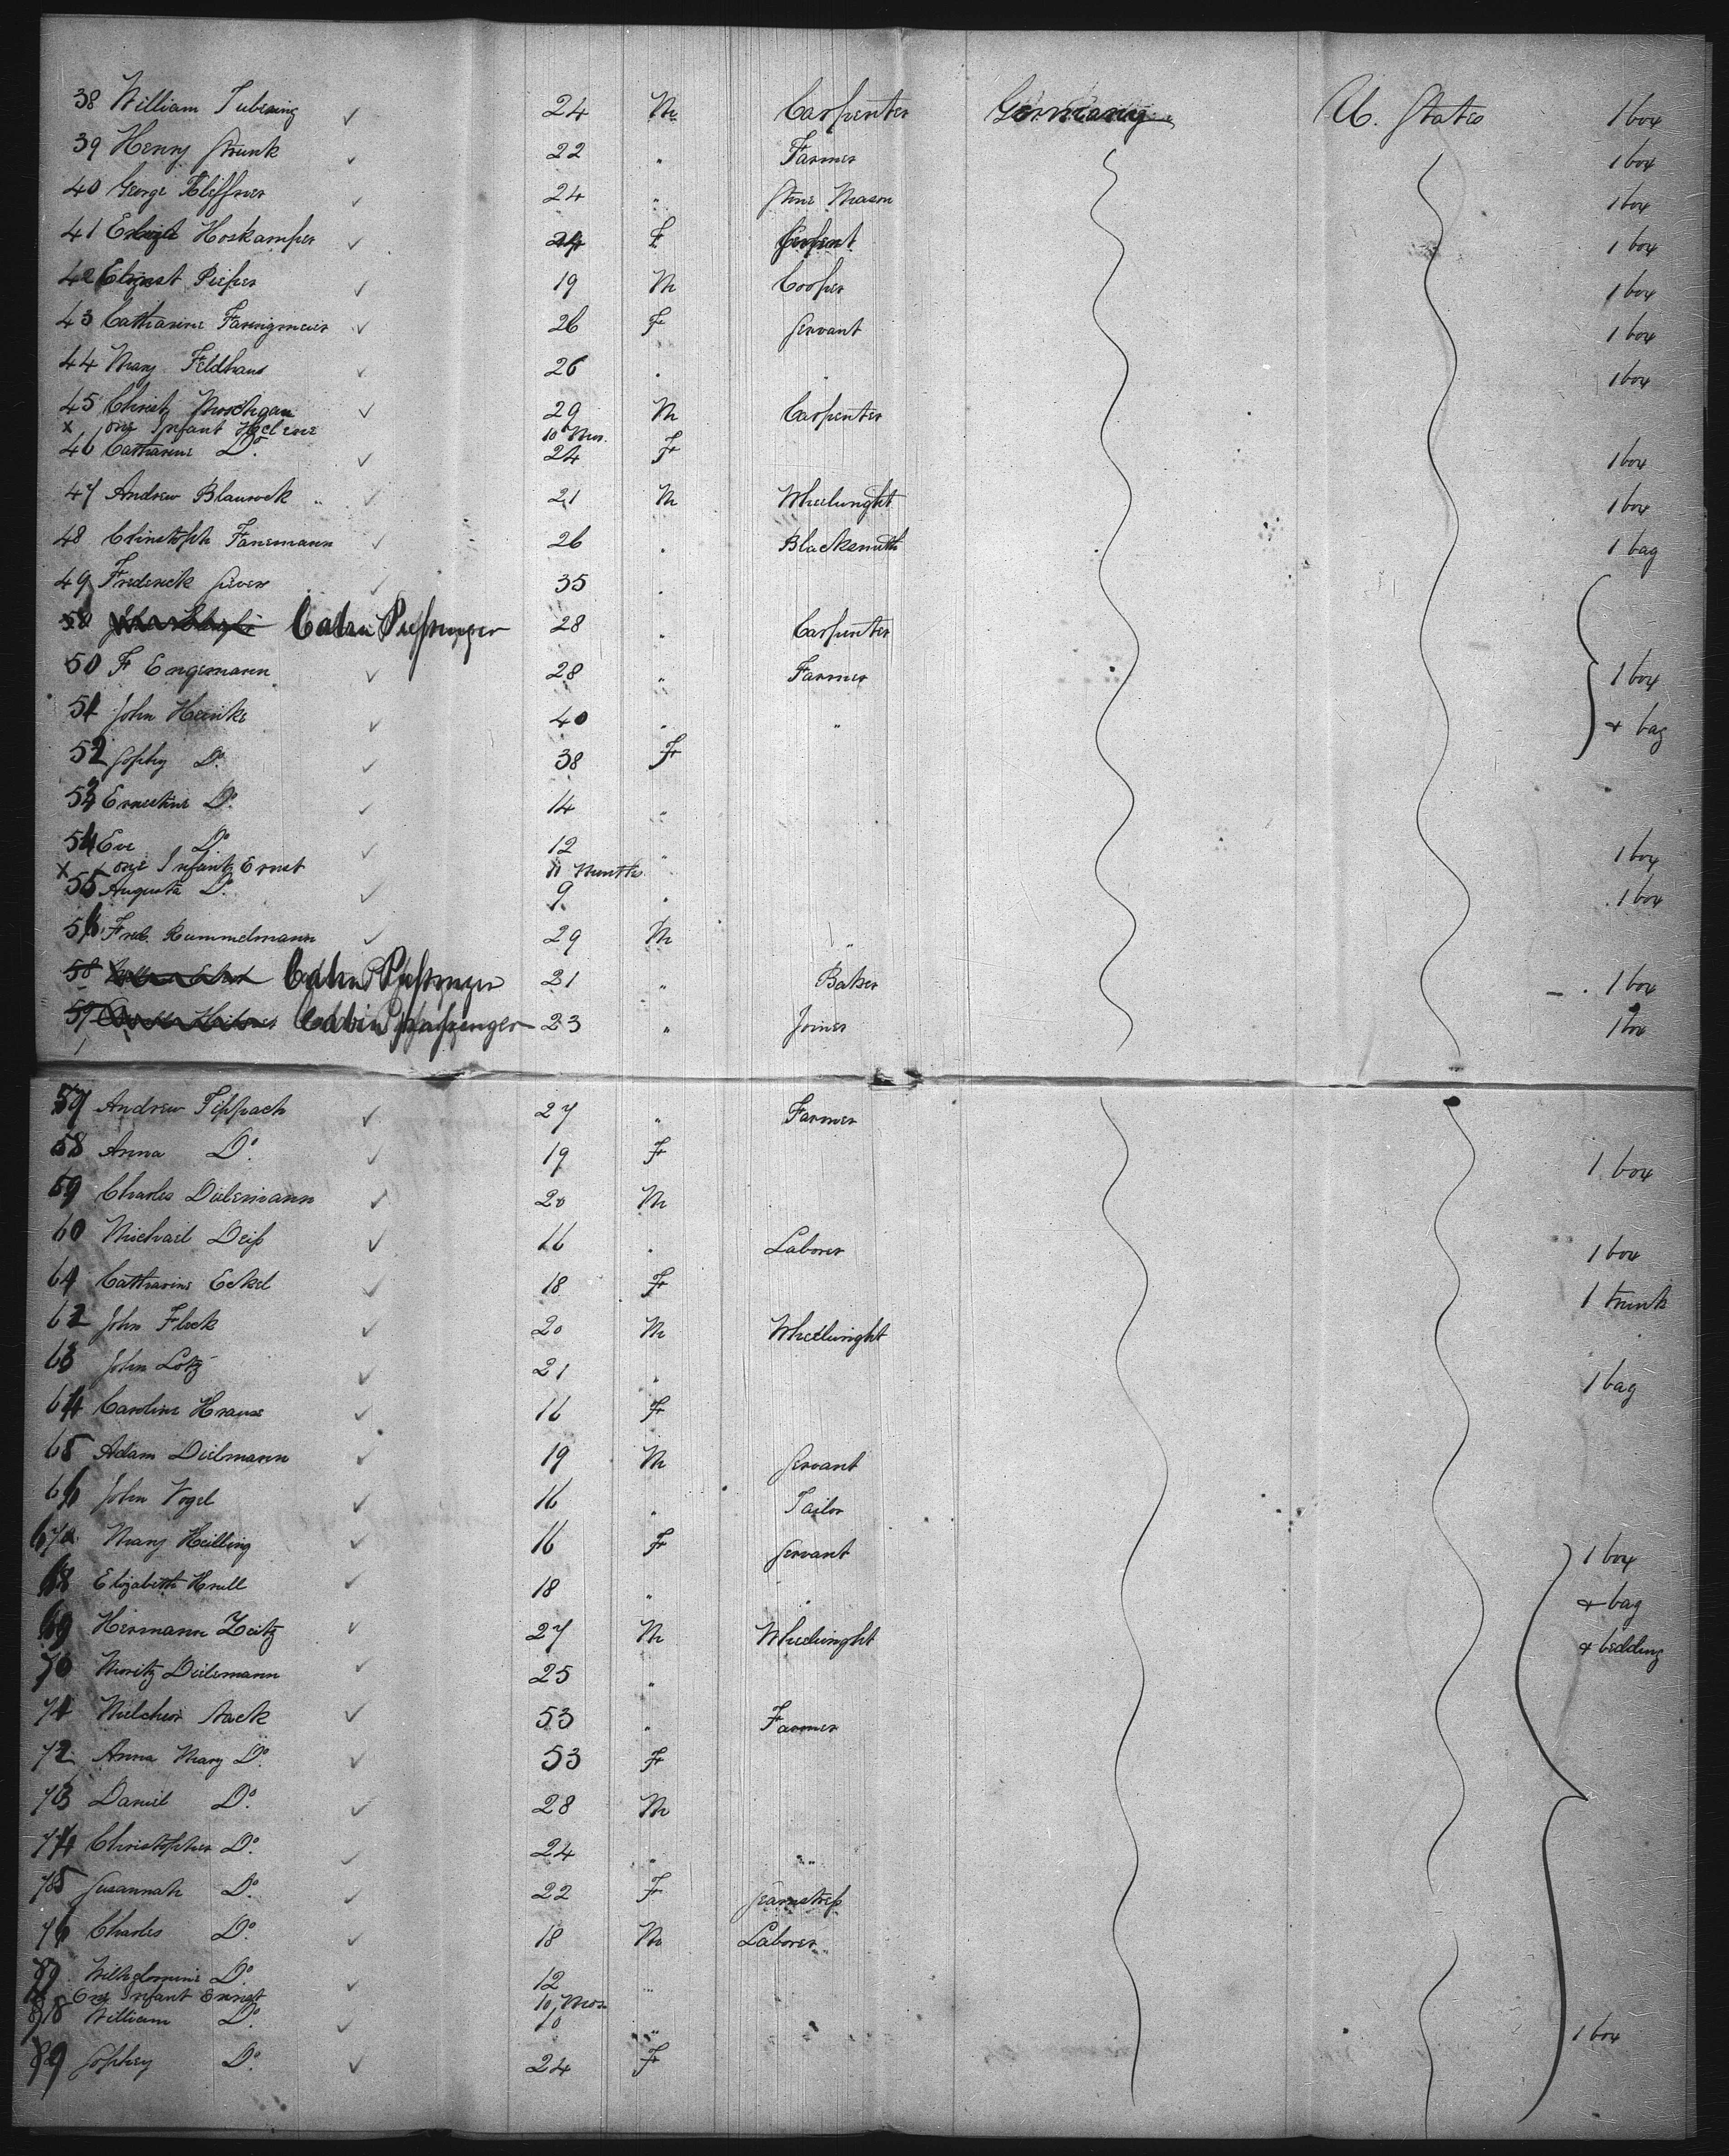 38 William Tubesing 24 M Carpenter Germany U. States 1 box
39 Henry Strunk 22 " Farmer 1 box
40 George Kleffner 24 " Stone Mason 1 box
41 Hoskamper 24 F 1 box
42 Ernst Pieper 19 M Cooper 1 box
43 Catharine Farrigmeier 26 F Servant 1 box
44 Mary Feldhaus 26 " " 1 box
45 Christ 29 M Carpenter
x one Infant Helene 10 Mos.
46 Catharine Do. 24 F 1 box
47 Andrew Blaurock 21 M Wheelwright 1 box
48 Christoph Fanemann 26 " Blacksmith 1 bag
49 Frederick Sievers 35 "
Cabin Passenger 28 " Carpenter
50 Fr Engemann 28 " Farmer 1 box
51 John Heinke 40 " " & bag
52 Sophy Do. 38 F
53 Ernestine Do. 14 "
54 Eve Do. 12 " 1 box
x one Infant Ernst 11 Months
55 Augusta Do. 9 " 1 box
56 Fred. Rummelmann 29 M "
58 Cabin Passenger 21 " Baker 1 box
59 Cabin Passenger 23 " Joiner 1 box
57 Andrew Tippach 27 " Farmer
58 Anna Do. 19 F 1 box
59 Charles Dielemann 20 M
60 Michael Deiß 16 " Laborer 1 box
61 Catharine Eckel 18 F 1 trunk
62 John Fleck 20 M Wheelwright
63 John Lotz 21 " 1 bag
64 Caroline Krause 16 F
65 Adam Dielmann 19 M Servant
66 John Vogel 16 " Tailor
67 Mary Heilling 16 F Servant 1 box
68 Elizabeth Krull 18 " " & bag
69 Hermann Zeitz 27 M Wheelwright & bedding
70 Moritz Dielemann 25 "
71 Melchior Stack 53 " Farmer
72 Anna Mary Do. 53 F
73 Daniel Do. 28 M
74 Christopher Do. 24 " "
75 Susannah Do. 22 F Seamstreß
76 Charles Do. 18 M Laborer
Wilhelmine Do. 12 "
One Infant Ernst 10 Mos.
78 William Do. 10 " 1 box
Sophey Do. 24 F